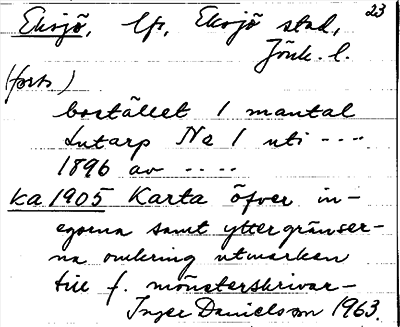 23
Eksjö, lfs, Eksjö stad,
Jönk. l.
(forts)
bostället 1 mantal
Lutarp No 1 uti ----
1896 av ----
ka 1905 Karta öfver in-
egorna samt yttergränser-
na omkring utmarken
till f. mönsterskrivar-
Inger Danielsson 1963.